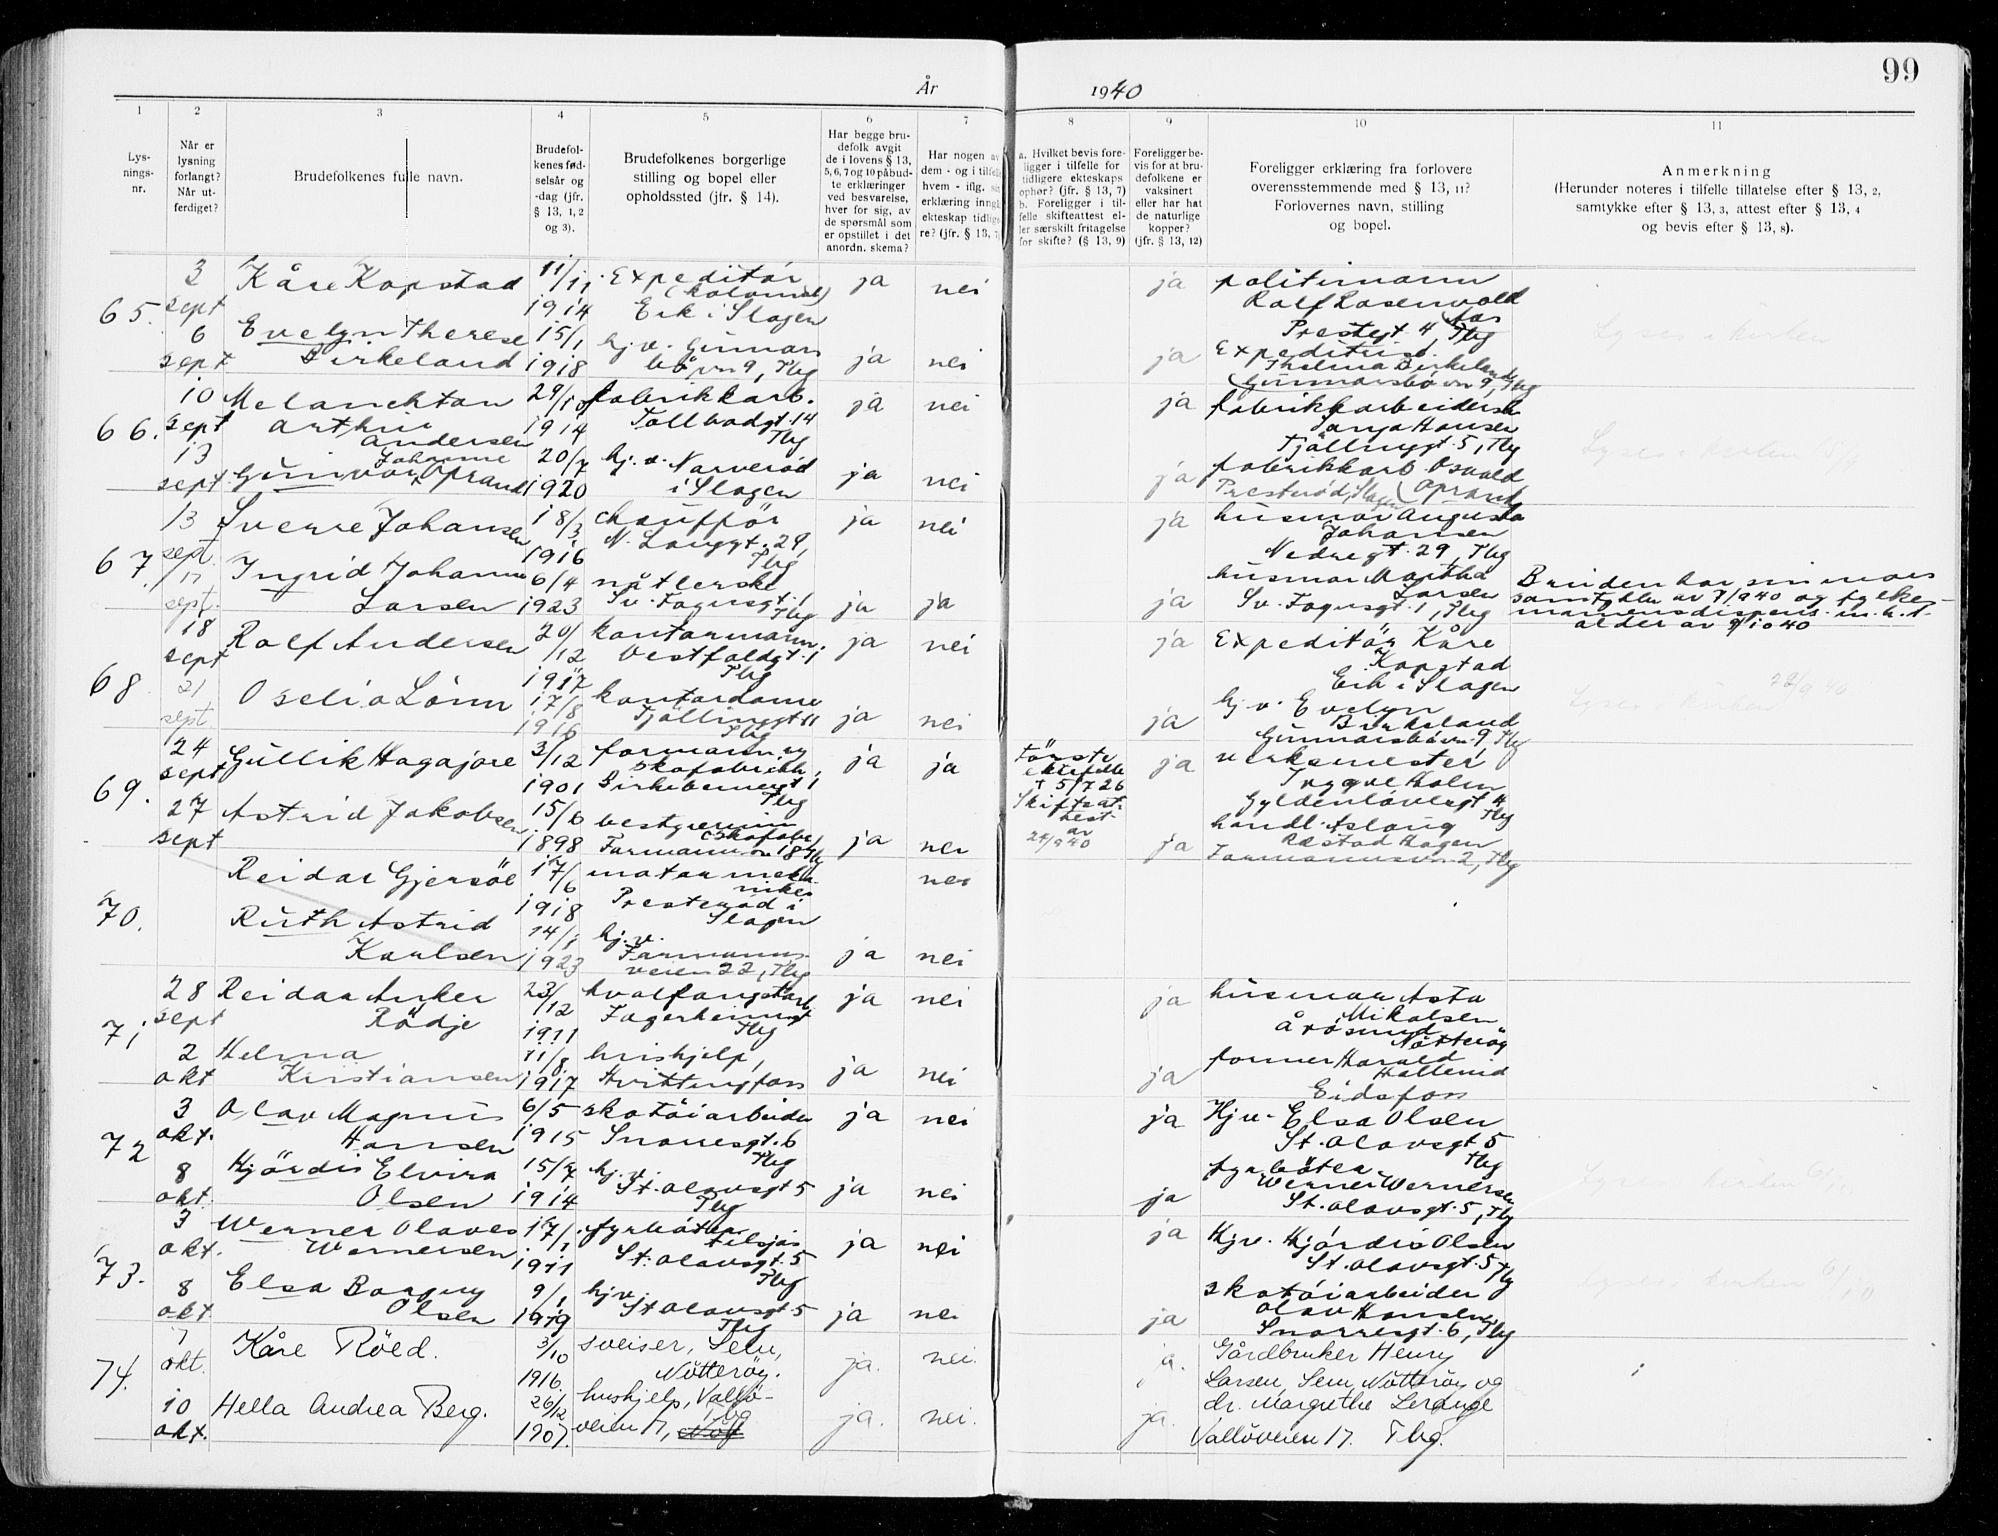 99
År 1940
1 2 3 4 5 6 7 8 9 10 11
Lys-
nings-
nr.
Når er
lysning
forlangt?
Når ut-
ferdiget?
Brudefolkenes fulle navn.
Brudefol-
kenes fød-
selsår og
-dag (jfr.
§ 13, 1, 2
og 3).
Brudefolkenes borgerlige
stilling og bopel eller
opholdssted (jfr. § 14).
Har begge bru-
defolk avgit
de i lovens § 13,
5, 6, 7 og 10 påbud-
te erklæringer
ved besvarelse,
hver for sig, av
de spørsmål som
er opstillet i det
anordn. skema?
Har nogen av
dem - og i tilfelle
hvem - iflg. sin
erklæring inngåt
ekteskap tidlige-
re? (jfr. § 13, 7)
a. Hvilket bevis fore-
ligger i tilfelle for
tidligere ekteskaps
ophør? (jfr. § 13, 7)
b. Foreligger i til-
felle skifteattest el-
ler særskilt fritagelse
for skifte? (§ 13, 9)
Foreligger be-
vis for at bru-
defolkene er
vaksinert
eller har hat
de naturlige
kopper?
(jfr. § 13, 12)
Foreligger erklæring fra forlovere
overensstemmende med § 13, 11?
Forlovernes navn, stilling
og bopel.
Anmerkning
(Herunder noteres i tilfelle tillatelse efter § 13, 2,
samtykke efter § 13, 3, attest efter § 13, 4
og bevis efter § 13, 8).
65.
3
sept
Kåre Kopstad
11/11
1914
Expeditör
(kolonial)
Eik i Slagen
ja
nei
ja
politimann
Rolf Rosenvold
Prestegt 4, Tbg
6
sept
Evelyn Therese
Birkeland
15/1
1918
hj.v. Gunnars
bövn 9, Tbg
ja
nei
ja
Expeditrise
Thelma Birkeland
Gunnarsbövn 9, Tbg
Lyses i kirken
66.
10
sept
Melanchton
Arthur
Andersen
29/10
1914
fabrikkarb.
Tollbodgt. 14
Tbg
ja
nei
ja
fabrikkarbeiderske
Hansen
Tjöllinggt. 5, Tbg
13
sept
Johanne
Gunvor Oprand
20/7
1920
hj.v. Narveröd
i Slagen
ja
nei
ja
fabrikkarb. Osvald
Oprand
Presteröd, Slagen
Lyses i kirken 15/9
67.
13
sept.
Sverre Johansen
18/3
1916
chaufför
N. Langgt. 29,
Tbg
ja
nei
ja
husmor Augusta
Johansen
Nedregt. 29, Tbg
17
sept.
Ingrid Johanne
Larsen
6/4
1923
nåtlerske
Sv. Foynsgt. 1,
Tbg
ja
ja
ja
husmor Martha
Larsen
Sv. Foynsgt. 1, Tbg
Bruden har sin mors
samtykke av 7/9 40 og fylke-
mannensdispens. m.h.t.
alder av 9/10 40
68
18
sept
Rolf Andersen
20/12
1917
kontormann
Vestfoldgt. 1
Tbg
ja
nei
ja
Expeditör Kåre
Kopstad
Eik i Slagen
21
sept.
Oselia Lönn
17/8
1916
kontordame
Tjöllinggt 11
Tbg
ja
nei
ja
hj.v. Evelyn
Birkeland
Gunnarsbövn. 9 Tbg
Lyses i kirken 22/9 40
69.
24
sept
Gullik Hagajore
3/12
1901
formann ved
skofabrikk,
Tbg
ja
ja
Förste
ektefelle
† 5/7 26
Skifteat-
test
av
24/9 40
ja
verksmester
Trygve Holm
Gyldenlövesgt 4
Tbg
27
sept
Astrid Jakobsen
15/6
1898
(skofabr.)
Farmannsvn 18 Tbg
ja
nei
ja
handl. Aslaug
Røstad Hagen
Farmannsvn. 2, Tbg
70.
Reidar Gjersöe
17/6
1918
motormeka-
niker
Presteröd i
Slagen
nei
Ruth Astrid
Karlsen
14/1
1923
hj.v.
Farmanns-
veien 22, Tbg
ja
nei
71
28
sept
Reidar Anker
Rödje
23/12
1911
hvalfangstarb.
Fagerheimgt
Tbg
ja
nei
ja
husmor Asta
Mikalsen
Årösund
Nötteröy
2
okt
Helma
Kristiansen
11/8
1917
hushjelp,
Hvittingfoss
ja
nei
ja
former Harald
Eidsfoss
72
3
okt.
Olav Magnus
Hansen
6/5
1915
skotöiarbeider
Snorresgt. 6
Tbg
ja
nei
ja
Hjv. Elsa Olsen
St. Olavsgt 5
Tbg
8
okt.
Hjördis Elvira
Olsen
15/7
1914
hj.v.
St. Olavsgt 5
Tbg
ja
nei
ja
fyrböter
Werner Wernersen
St. Olavsgt. 5, Tbg
Lyses i kirken 6/
73.
3
okt.
Werner Olaves
Wernersen
17/1
1911
fyrböter
tilsjøs
St. Olavsgt. 5
Tbg
ja
nei
ja
Hjv. Hjördis Olsen
St. Olavsgt. 5 Tbg
8
okt.
Elsa Borgny
Olsen
9/1
1919
hj.v.
St Olavsgt 5
Tbg
ja
nei
ja
skotöiarbeider
Olav Hansen
Snorresgt. 6, Tbg
Lyses i kirken 6/10
74.
7
okt.
Kåre Röed.
3/10
1916.
sveiser, Sem,
Nötteröy.
ja.
nei.
ja.
Gårdbruker Henry
Larsen, Sem, Nötteröy og
10
okt.
Hella Andrea Berg.
26/12
1907.
hushjelp, Vallö-
veien 17, Tbg
ja.
nei.
ja.
dr. Margrethe Lerange
Vallöveien 17. Tbg.